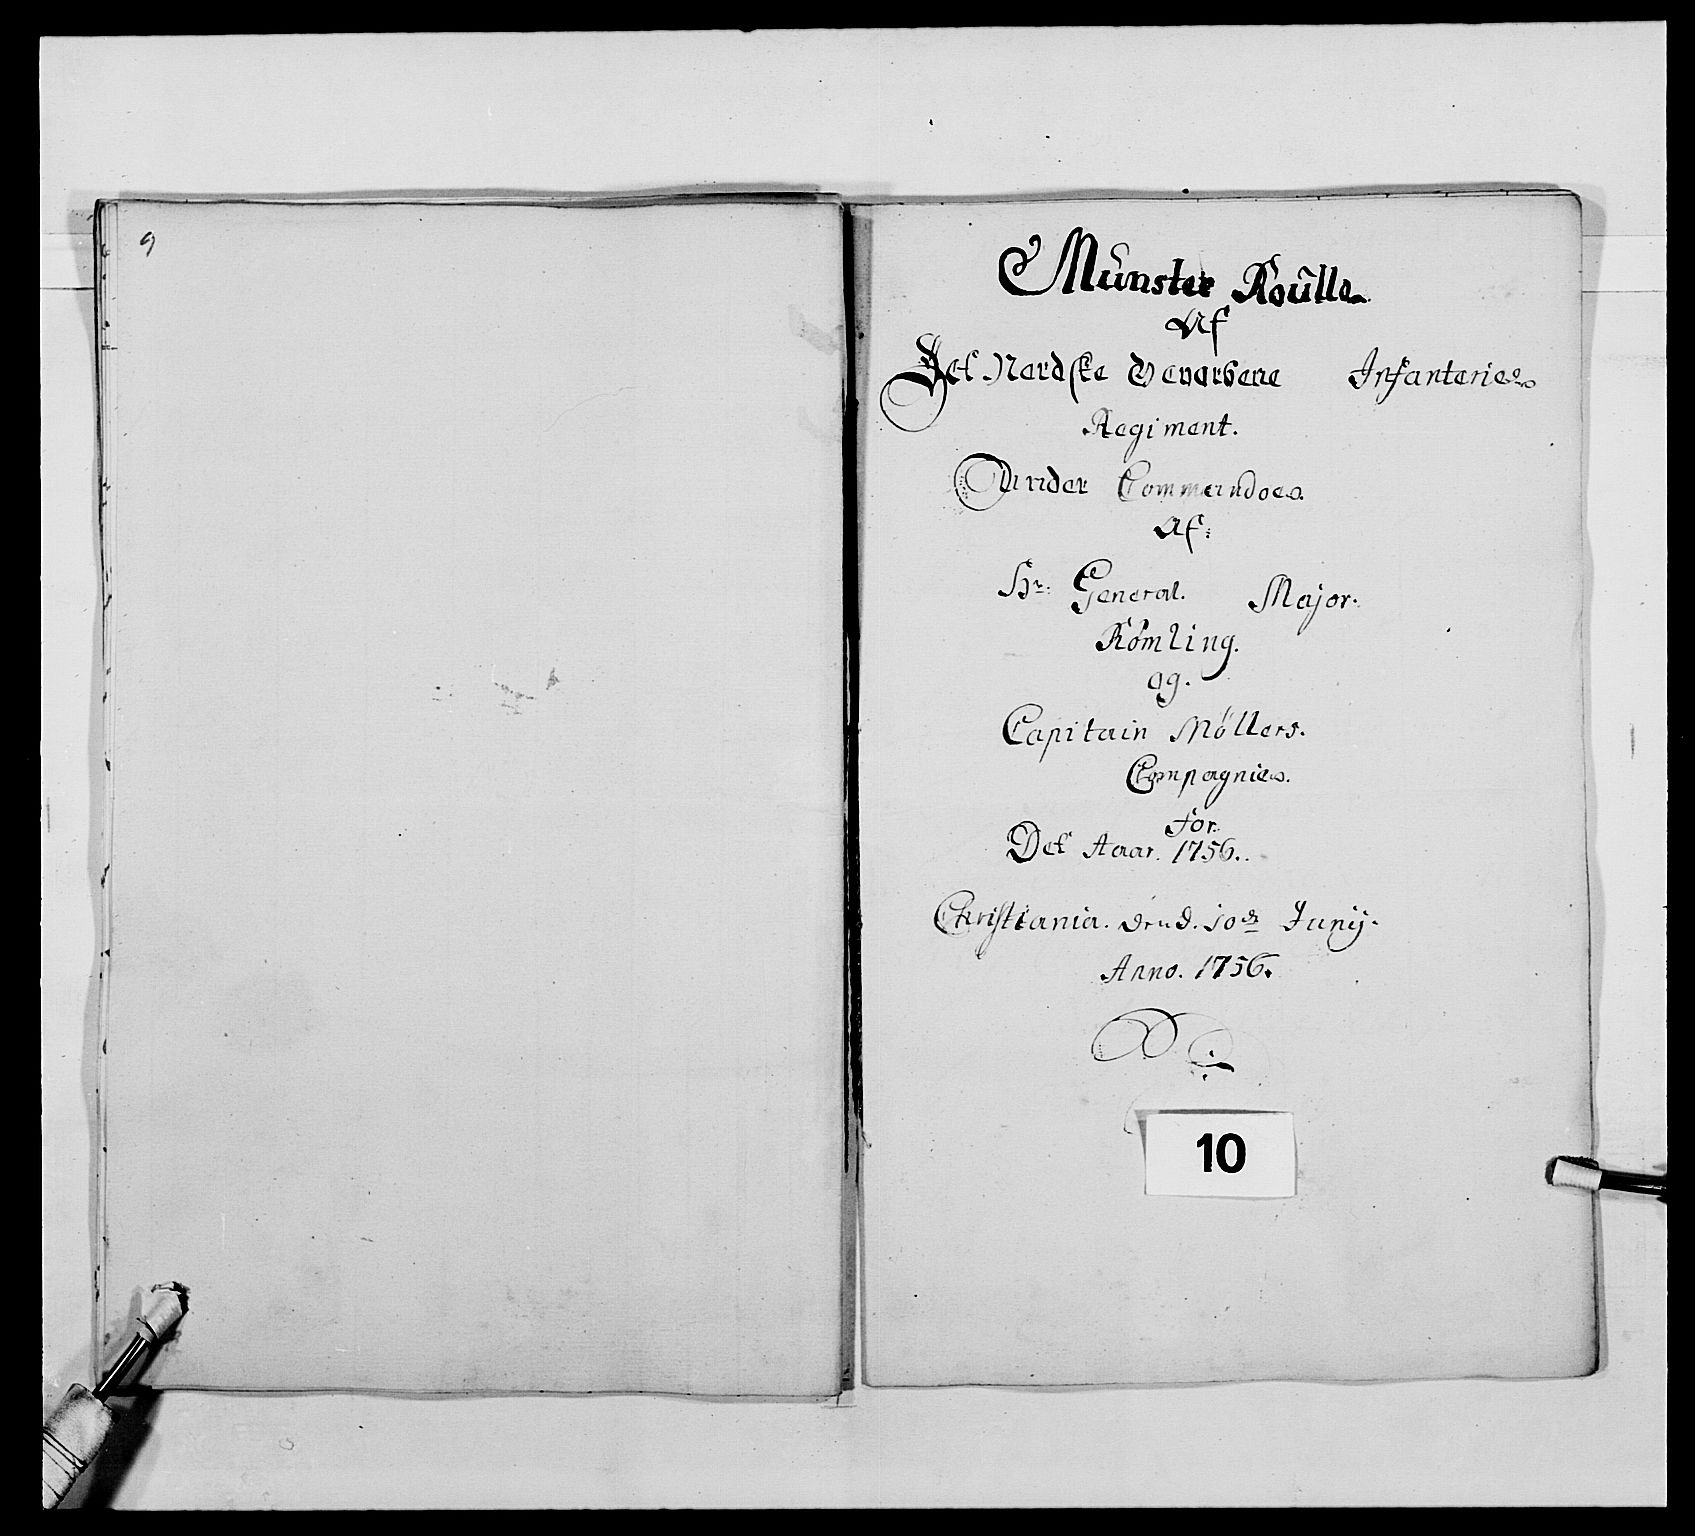 9
Münster Roülle
Af
Det Nordske Geworbene Infanterie
Regiment.
Under Commandoe
Af:
Hr: General. Major.
Römling.
og.
Capitain Möllers.
Compagnie.
for
Det Aaar. 1756.
Christiania. Dend. 10de Junij.
Anno. 1756.
10